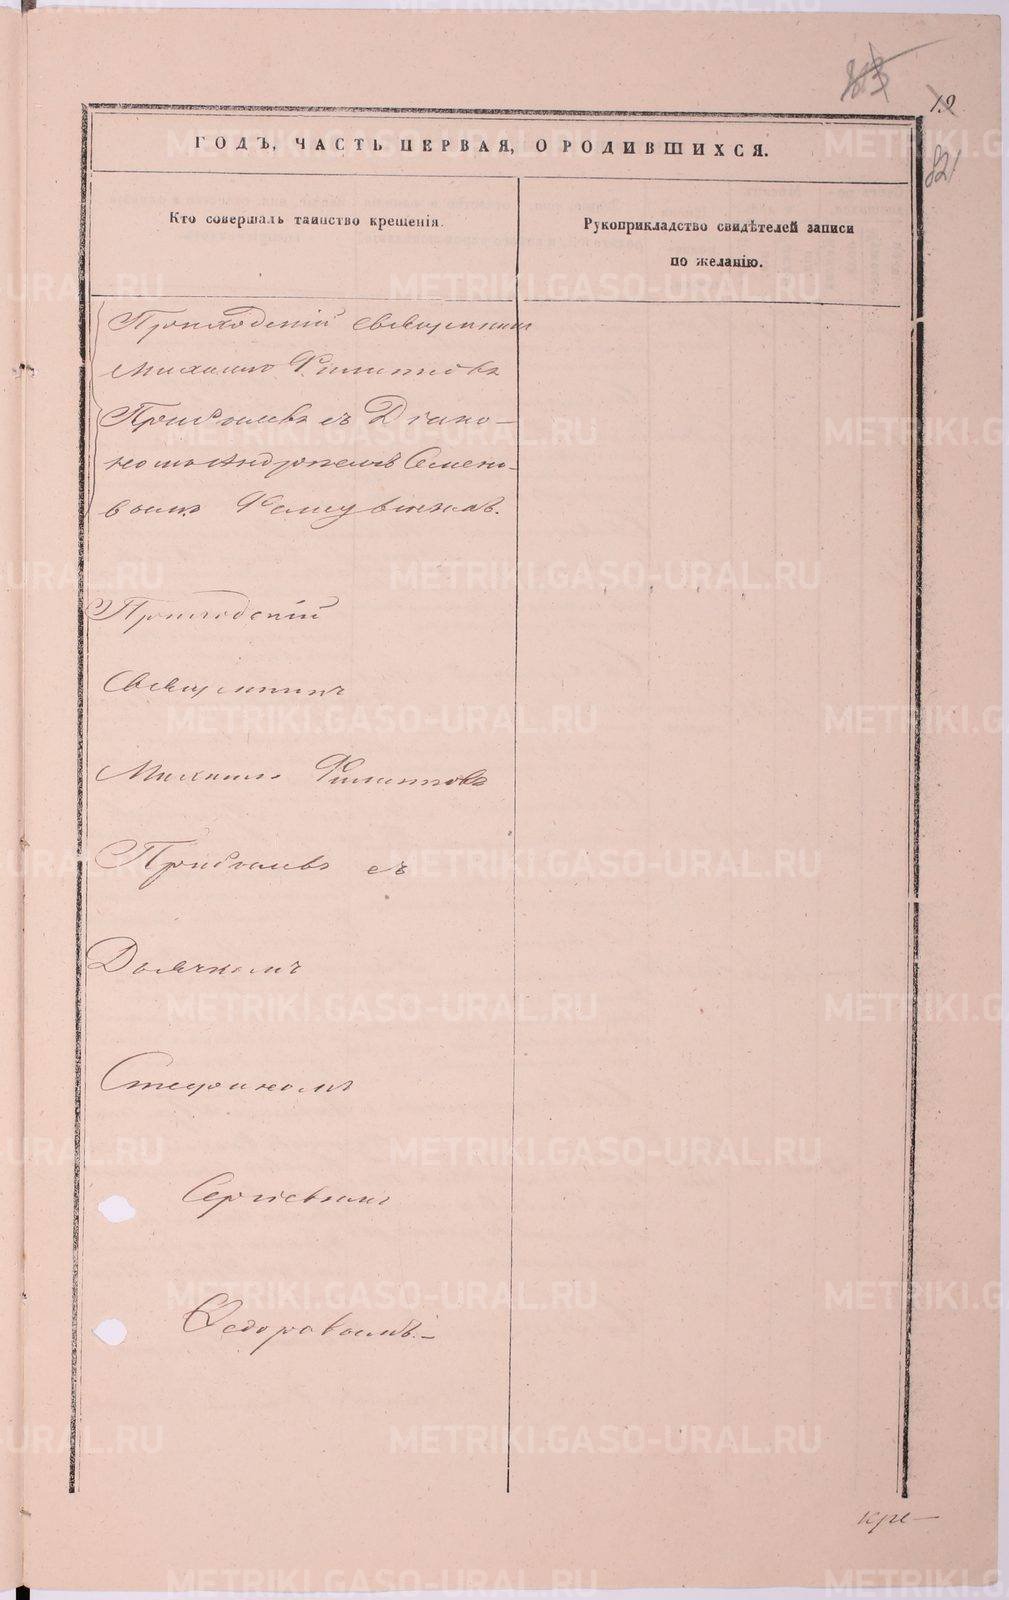 12
821
ГОДЪ, ЧАСТЬ ПЕРВАЯ, О РОДИВШИХСЯ.
Кто совершалъ таинство крещенія.
Рукоприкладство свидѣтелей записи
по желанію.
Приходскій Священникъ
Михаилъ Филиповъ
Прибылевъ съ Діако-
номъ Семено-
вымъ
Приходскій
Священникъ
Михаилъ Филиповъ
Прибылевъ съ
Дьячкомъ
Стефаномъ
Сергіевымъ
Федоровымъ.-
кре-
METRIKI.GASO-URAL.RU